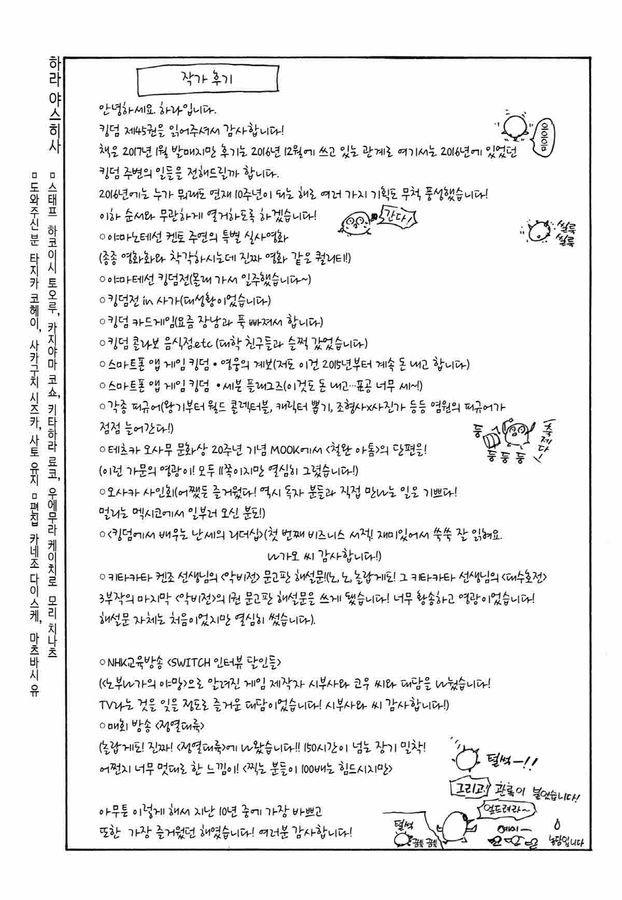 작가 후기
안녕하세요 하라입니다.
킹덤 제45권을 읽어주셔서 감사합니다!
책은 2017년 1월 발매지만 후기는 2016년 12월에 쓰고 있는 관계로 여기서는 2016년에 있었던
킹덤 주변의 일들을 전해드릴까 합니다.
2016년에는 누가 뭐래도 연재 10주년이 되는 해로 여러 가지 기획도 무척 풍성했습니다!
이하 순서와 무관하게 열거하도록 하겠습니다!
간다!
○야마노테선 켄토 주연의 특별 실사영화
(종종 영화화와 착각하시는데 진짜 영화 같은 퀄리티!)
○야마테선 킹덤전(몰래 가서 일주했습니다~)
○킹덤전 in 사가(대성황이었습니다)
○킹덤 카드게임(요즘 장남과 푹 빠져서 합니다)
○킹덤 콜라보 음식점etc (대학 친구들과 슬쩍 갔었습니다)
○스마트폰 앱 게임 킹덤・영웅의 계보(저도 이건 2015년부터 계속 돈 내고 합니다)
○스마트폰 앱 게임 킹덤・세븐 플래그즈(이것도 돈 내고…표공 너무 세~!)
○각종 피규어(왕기부터 월드 콜렉터블, 캐릭터 뽑기, 조형사x사진가 등등 염원의 피규어가
점점 늘어간다!)
둥
둥둥둥
축제다
○테츠카 오사무 문화상 20주년 기념 MOOK에서 <철완 아톰>의 단편을!
(이런 가문의 영광이! 모두 11쪽이지만 열심히 그렸습니다!)
○오사카 사인회(어쨌든 즐거웠다! 역시 독자 분들과 직접 만나는 일은 기쁘다!
멀리는 멕시코에서 일부러 오신 분도!)
○<킹덤에서 배우는 난세의 리더십>(첫 번째 비즈니스 서적! 재미있어서 쑥쑥 잘 읽혀요.
나가오 씨 감사합니다!)
○키타카타 켄조 선생님의 <악비전> 문고판 해설문!(노, 노, 놀랍게도! 그 키타카타 선생님의 <대수호전>
3부작의 마지막 <악비전>의 1권 문고판 해설문을 쓰게 됐습니다! 너무 황송하고 영광이었습니다!
해설문 자체는 처음이었지만 열심히 썼습니다).
○NHK교육방송 <SWITCH 인터뷰 달인들>
(<노부나가의 야망>으로 알려진 게임 제작자 시부사와 코우 씨와 대담을 나눴습니다!
TV라는 것을 잊을 정도로 즐거운 대담이었습니다! 시부사와 씨 감사합니다!)
○매회 방송 <정열대륙>
(놀랍게도! 진짜! <정열대륙>에 나왔습니다!! 150시간이 넘는 장기 밀착!
어쩐지 너무 멋대로 한 느낌이! <찍는 분들이 100배는 힘드시지만>
털썩—!!
그리고! 관록이 붙었습니다!
엎드려라~
예이~
농담입니다
털썩
아무튼 이렇게 해서 지난 10년 중에 가장 바쁘고
또한 가장 즐거웠던 해였습니다! 여러분 감사합니다!
하라 야스히사
▫스태프 하코이시 토오루, 카지야마 코쇼, 키타하라 료코, 우에무라 케이치로 모리 치나츠
▫도와주신 분 타지카 코헤이, 사카구치 시즈카, 사토 유지 ▫편집 카네조 다이스케, 마츠바시 유